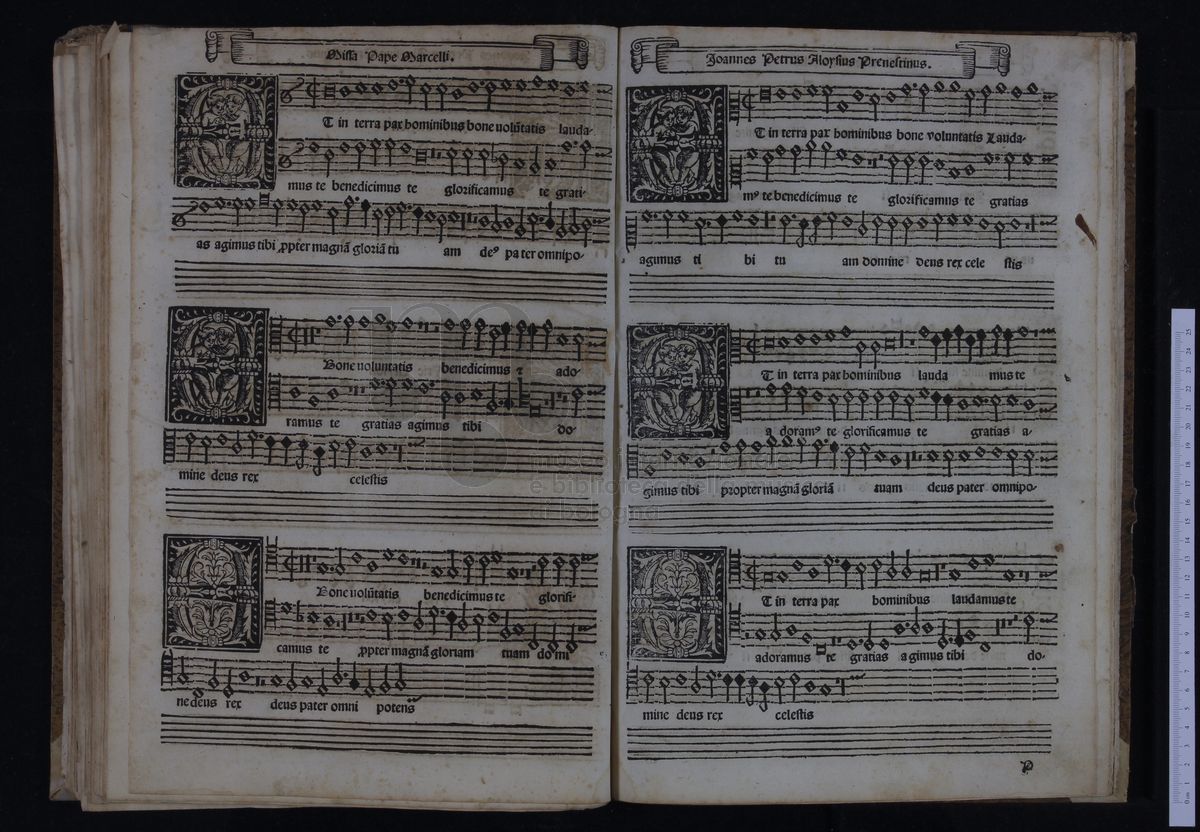 Missa Pape Marcelli.
T in terra pax hominibus bone volūtatis lauda-
mus te benedicimus te glorificamus te grati-
as agimus tibi ꝓpter magnā gloriā tu am deꝰ pa ter omnipo-
Bone voluntatis benedicimus te ado-
ramus te gratias agimus tibi do-
mine deus rex celestis
Bone volūtatis benedicimus te glorifi-
camus te ꝓpter magnā gloriam tuam do mi
ne deus rex deus pater omni potens
Joannes Petrus Aloysius Prenestinus.
T in terra pax hominibus bone voluntatis Lauda-
mꝰ te benedicimus te glorificamus te gratias
agimus ti bi tu am domine deus rex cele stis
T in terra pax hominibus lauda mus te
a doramꝰ te glorificamus te gratias a-
gimus tibi propter magnā gloriā tuam deus pater omnipo-
T in terra pax hominibus laudamus te
adoramus te gratias a gimus tibi do-
mine deus rex celestis
P
museo internazionale
e biblioteca della musica
di bologna